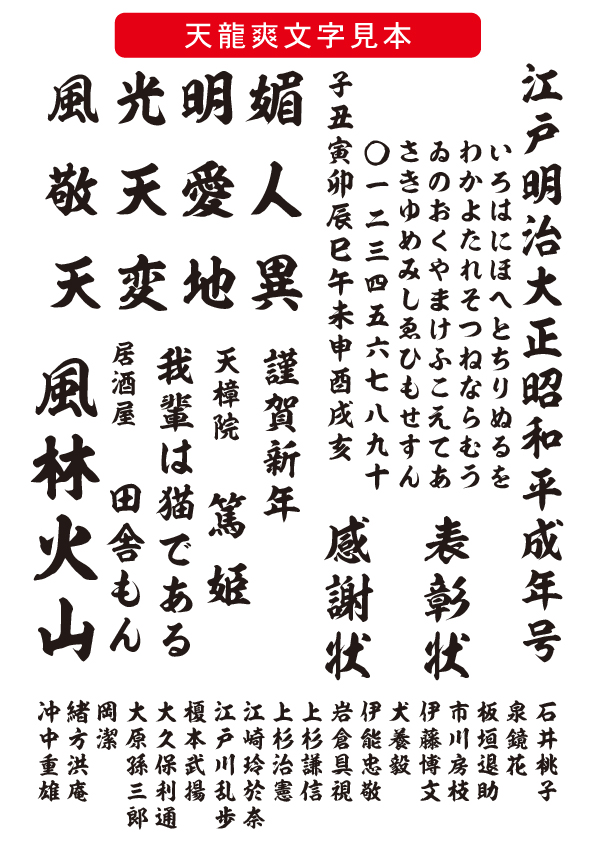 天龍爽文字見本
江戸明治大正昭和平成年号
いろはにほへとちりぬるを
わかよたれそつねならむう
ゐのおくやまけふこえてあ
さきゆめみしゑひもせすん
〇一二三四五六七八九十
子丑寅卯辰巳午未申酉戌亥
表彰状
感謝状
媚人異
明愛地
光天変
風敬天
謹賀新年
天樟院 篤姫
我輩は猫である
居酒屋 田舎もん
風林火山
石井桃子
泉鏡花
板垣退助
市川房枝
伊藤博文
犬養毅
伊能忠敬
岩倉具視
上杉謙信
上杉治憲
江崎玲於奈
江戸川乱歩
榎本武揚
大久保利通
大原孫三郎
岡潔
緒方洪庵
沖中重雄